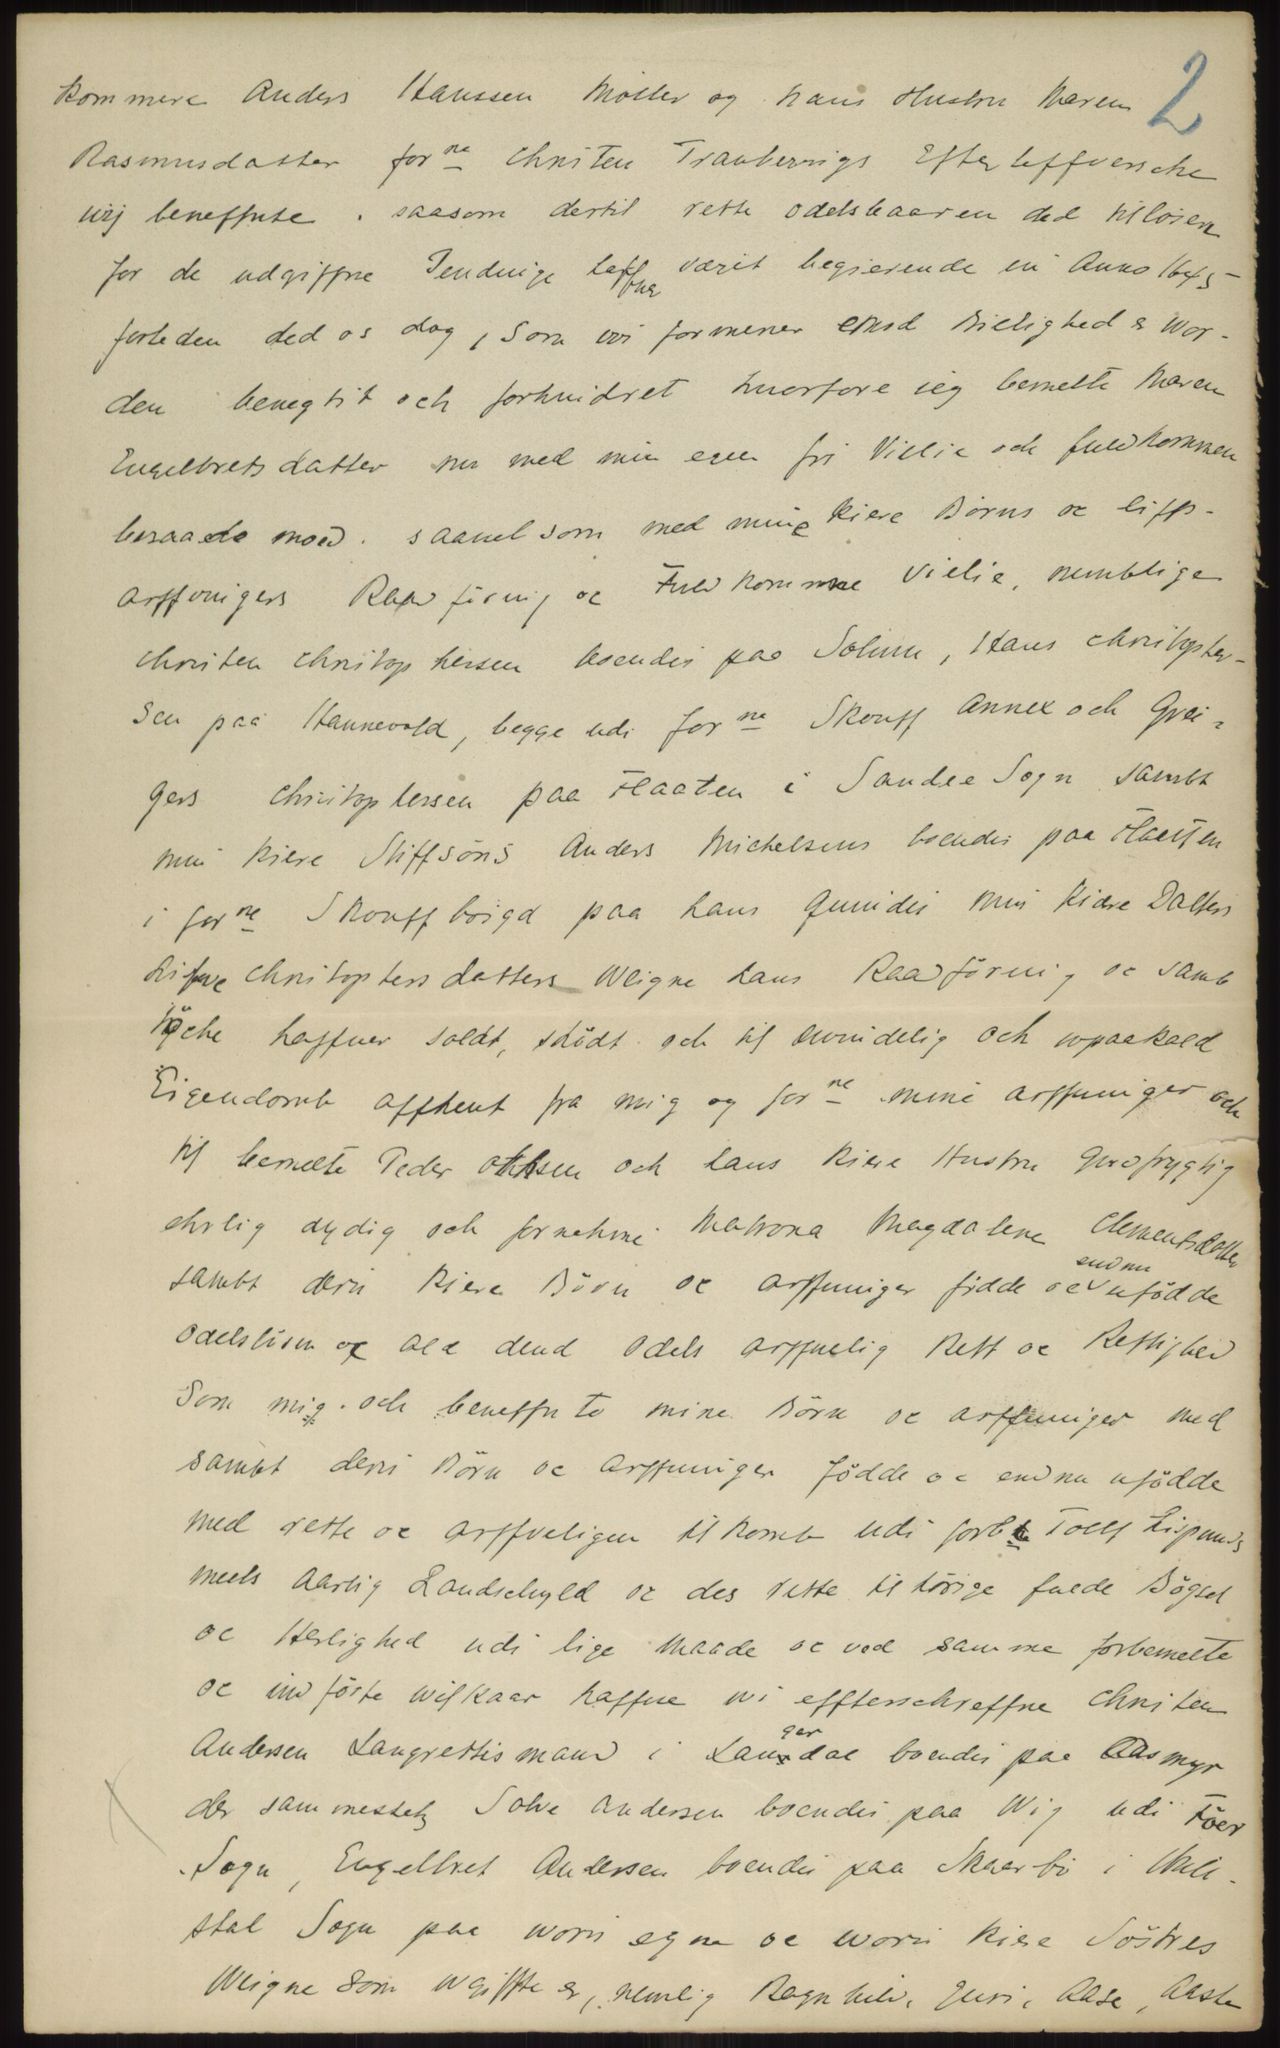 2
kommere Anders Hanssen Möller og hans Hustru Maren
Rasmusdatter for<sup>ne</sup> Christen Tranbergigs Effterleffversche
wij beneffnte. saasom dertil rette odelsbaaren ded tilløsen
for de udgiffne Pendinge haffver værit begierende in Anno 1645
forleden ded os dog, som wi formener emod Bielighed er Wor-
den benegtit och forhindret huorfore ieg bemelte Maren
Engelbretsdatter nu med min egen fri Vielie och fuldkommen
beraade moed. saauelsom med mine kiere Börns oc liffs-
arffvingers Raadföring oc Fuldkomne Vielie, nemblige
Christen Christophersen boendis paa Solum, Hans Christopher-
sen paa Hannevold, begge udi for<sup>ne</sup> Skouff Annex och Grei-
gers Christophersen paa Haaten i Sandee Sogn sambt
min kiere Stiffsöns Anders Michelsens boendis paa Haatten
i for<sup>ne</sup> Skouffboigd paa hans Quindis min kiære Datters
Lisive Christophersdatters Weigne hans Raadföring oc samb
töche haffuer soldt, skiödt och til ewindelig och wpaakald
Eigendomb affhent fra mig og for<sup>ne</sup> mine arffuinger och
til bemelte Peder Ottesen och hans kiere Hustru Gudfrygtig
ehrlig dydig och fornehme Matrona Magdalene Clementsdatter
sambt deris kiere Börn oc arffuinger födde oc endnu ufödde
odelslösen oc ald dend odels arffuelig Rett oc Rettighed
som mig och beneffnte mine Börn oc arffuinger med
sambt deris Börn oc arffuinger födde oc endnu ufödde
med rette oc arffveligen tilkomb udi forb<sup>te</sup> Tolff Lispunds
meels aarlig Landschyld oc des rette tilhörige fulde Bögsel
oc Herlighed udi lige Maade oc ved samme forbemelte
oc indförte wilkaar haffue wi effterschreffne Christen
Andersen Laugrettismand i Langerdal boendis paa Aasmyr
der sammestetz Solve Andersen boendis paa Wig udi Föer
Sogn, Engelbret Andersen boendis paa Skaarbö i Uhle-
stal Sogn paa woris egne oc woris kiere Söstres
Weigne som ugiffte er, nemlig Ragnhild, Guri, Aase, Aaste